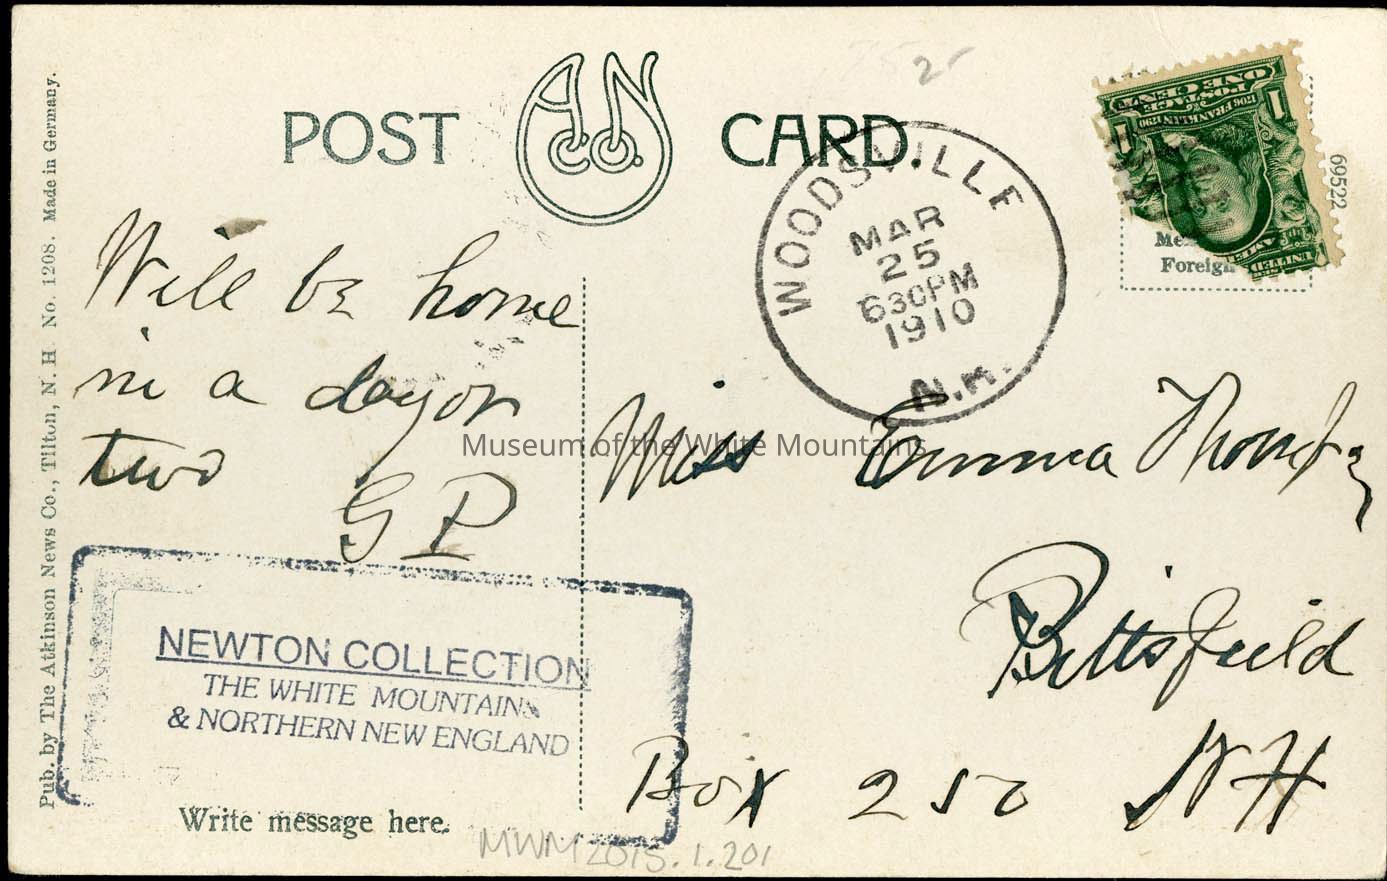 POST CARD.
A.N. Co.
Pub. by The Atkinson News Co., Tilton, N. H. No. 1208. Made in Germany.
WOODSVILLE
MAR
25
630PM
1910
N.H.
ONE CENT
POSTAGE
1706 FRANKLIN 1790
1
1
69522
Foreign
Will be home
in a day or
two
G P
Miss Emma
Pittsfield
Box 250 NH
Museum of the White Mountains
NEWTON COLLECTION
THE WHITE MOUNTAINS
& NORTHERN NEW ENGLAND
Write message here.
MWM2015.1.201